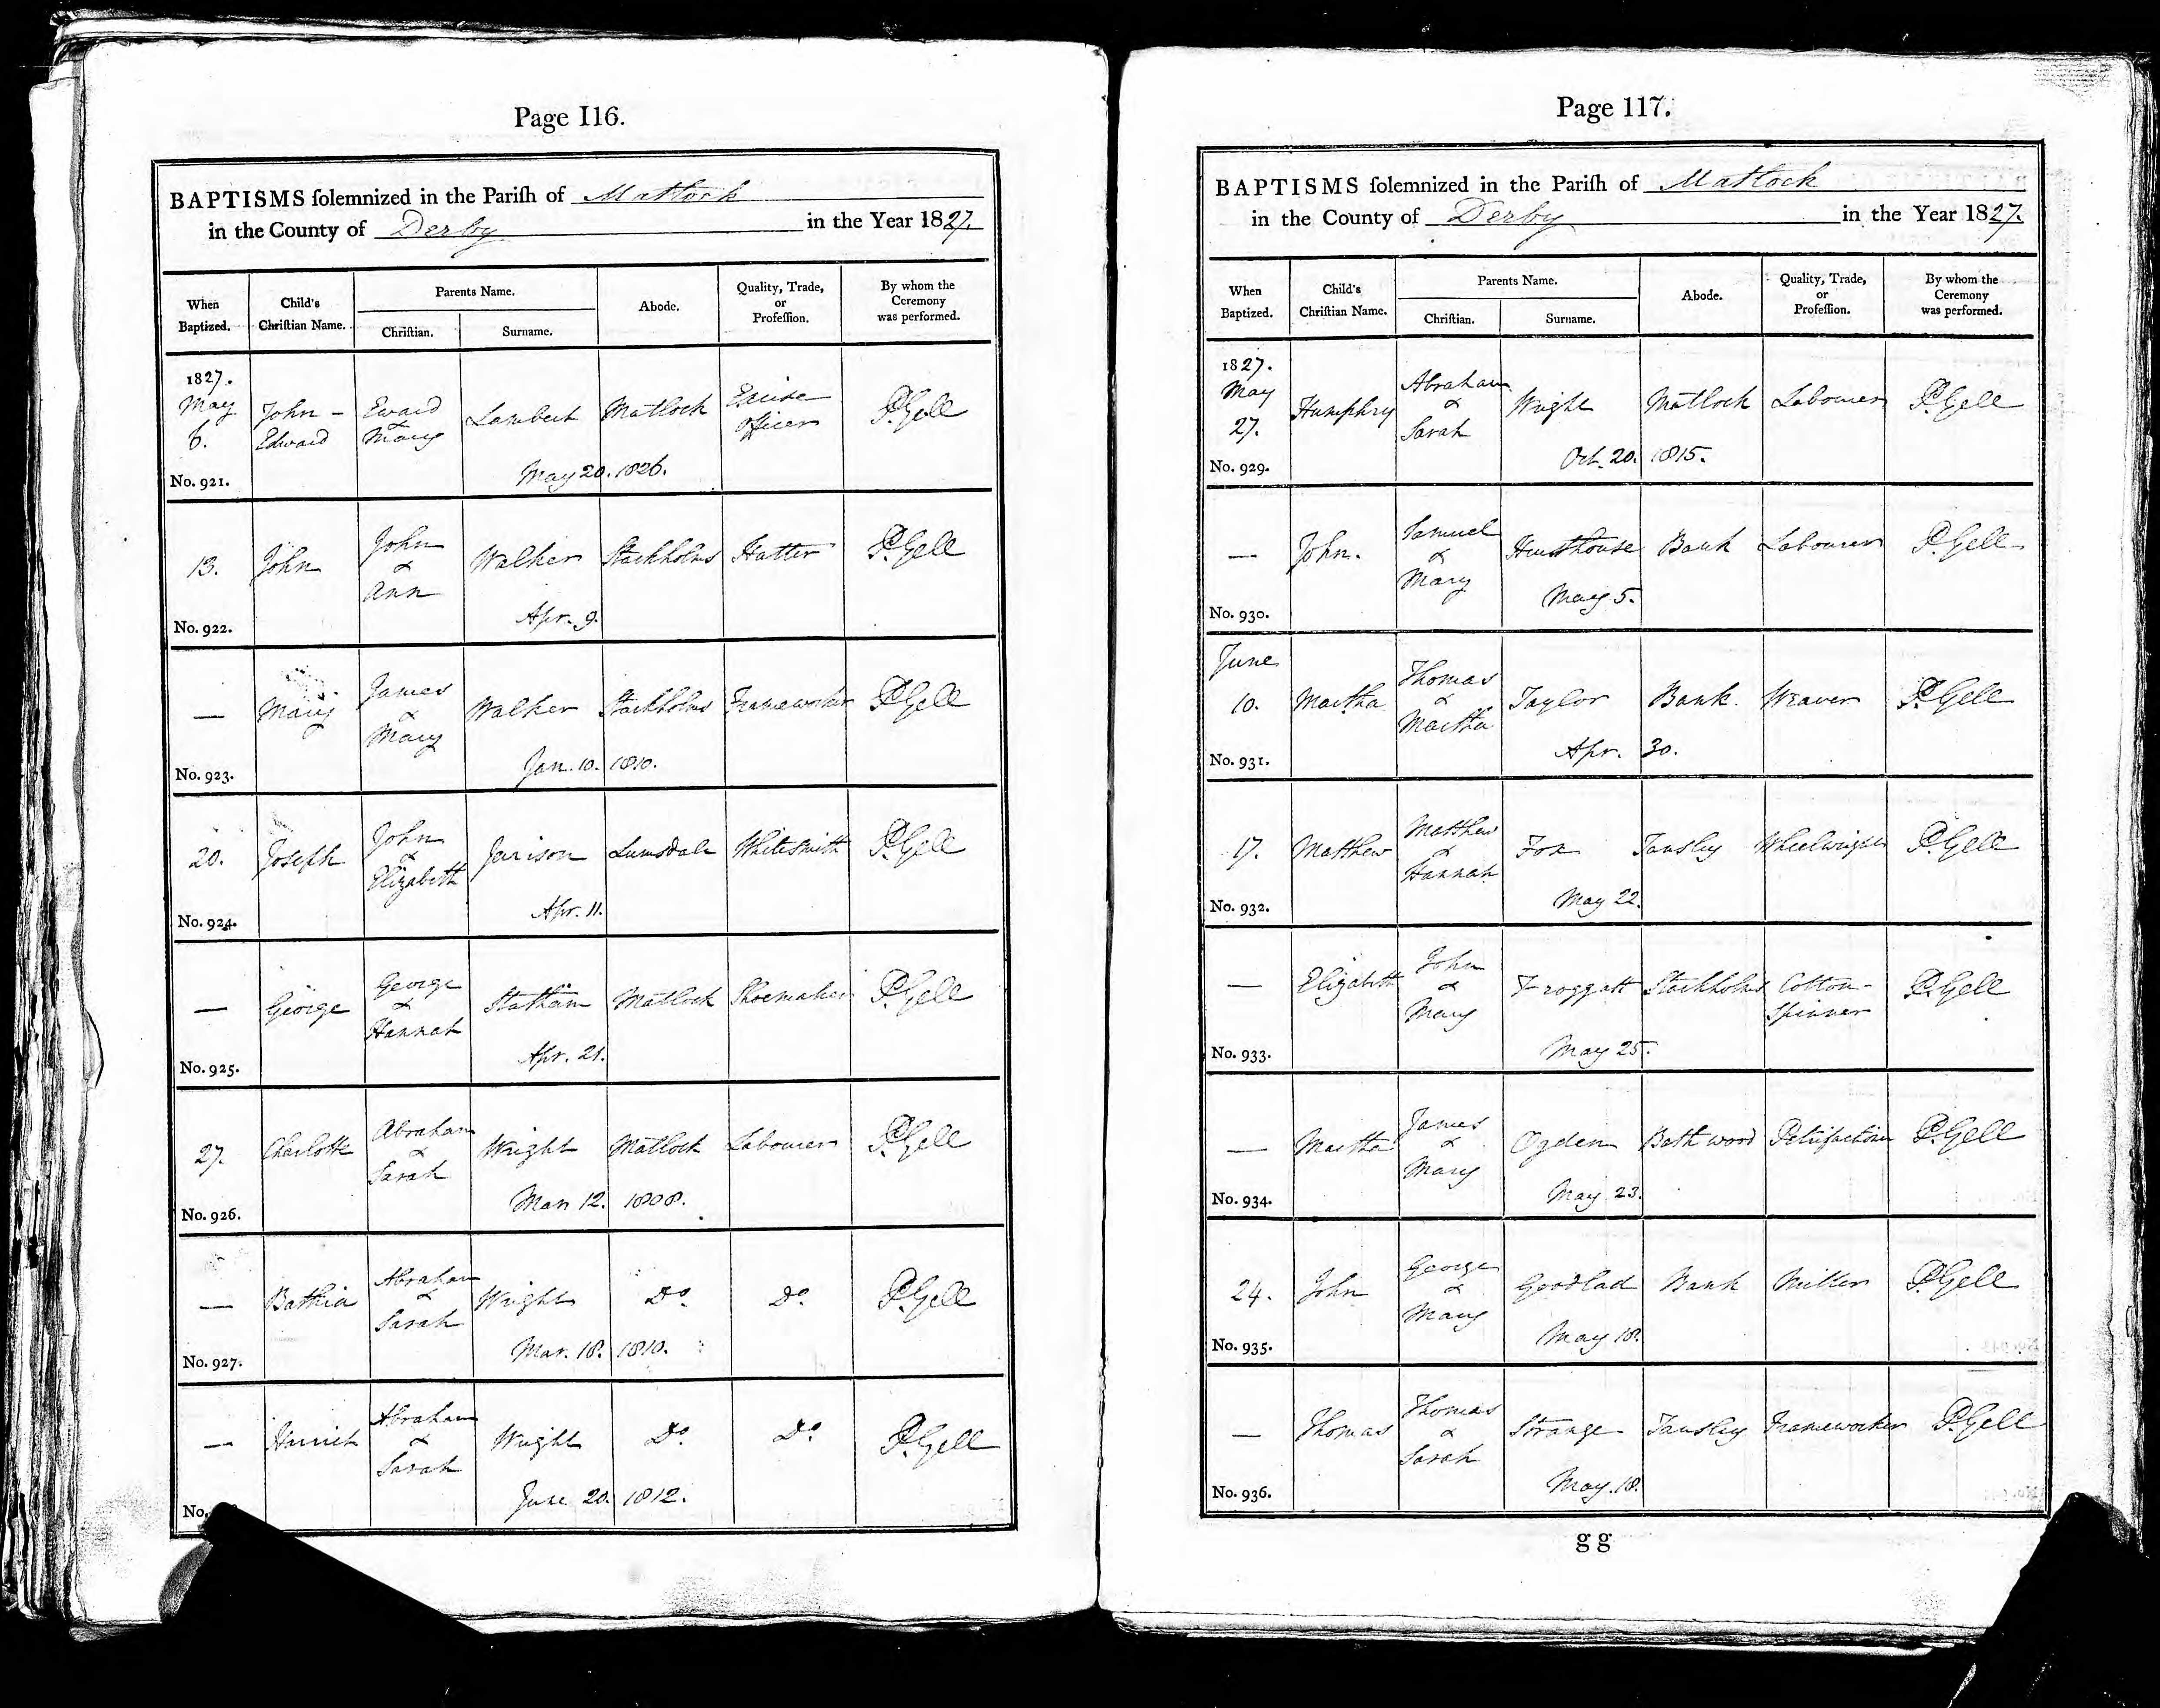 Page 116.
BAPTISMS ſolemnized in the Pariſh of Matlock
in the County of Derby in the Year 1827.
When Baptized.
Child's Chriſtian Name.
Parents Name.
Chriſtian.
Surname.
Abode.
Quality, Trade, or Profeſſion.
By whom the Ceremony was performed.
1827.
May 6. John - Edward Eward & Mary Lambert Matlock Excise officer P. Gell
May 20. 1826.
No. 921.
13. John John & Ann Walker Starkholms Hatter P. Gell
Apr. 9.
No. 922.
— Mary James & Mary Walker Starkholms Frameworker P. Gell
Jan. 10. 1810.
No. 923.
20. Joseph John & Elizabeth Lumsdale Whitesmith P. Gell
Apr. 11.
No. 924.
— George George & Hannah Statham Matlock Shoemaker P. Gell
Apr. 21.
No. 925.
27. Charlotte Abraham & Sarah Wright Matlock Labourer P. Gell
Mar. 12. 1808.
No. 926.
— Bathia Abraham & Sarah Wright Do. Do. P. Gell
Mar. 18. 1810.
No. 927.
— Harriet Abraham & Sarah Wright Do. Do. P. Gell
June 20. 1812.
No.
Page 117.
BAPTISMS ſolemnized in the Pariſh of Matlock
in the County of Derby in the Year 1827.
When Baptized.
Child's Chriſtian Name.
Parents Name.
Chriſtian.
Surname.
Abode.
Quality, Trade, or Profeſſion.
By whom the Ceremony was performed.
1827.
May 27. Humphry Abraham & Sarah Wright Matlock Labourer P. Gell
Oct. 20. 1815.
No. 929.
— John. Samuel & Mary Hursthouse Bank Labourer P. Gell
May 5.
No. 930.
June 10. Martha Thomas & Martha Taylor Bank. Weaver P. Gell
Apr. 30.
No. 931.
17. Matthew Matthew & Hannah Fox Tansley Wheelwright P. Gell
May 22.
No. 932.
— Elizabeth John & Mary Froggatt Starkholms Cotton-Spinner P. Gell
May 25.
No. 933.
— Martha James & Mary Ogden Bath wood P. Gell
May 23.
No. 934.
24. John George & Mary Goodlad Bank Miller P. Gell
May 18.
No. 935.
— Thomas Thomas & Sarah Strange Tansley Frameworker P. Gell
May. 18.
No. 936.
gg